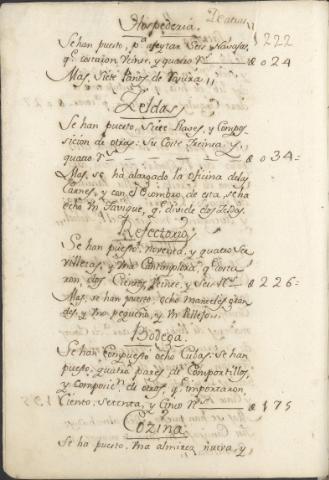 De atras 1222
Hospederia.
Se han puesto, pª afeytar Seis Navajas,
qe costaron Veinte, y quatro Rs. 024
Mas, Siete Paños de
Zeldas
Se han puesto Siete Llaves, y Compo-
sicion de otras: Su Coste Treinta, y
quatro Rs. 034=
Mas, se ha alargado la oficina de las
Carnes, y con el Gombro de esta se ha
echo Vn Tavique, qe divide dos Zeldas.
Refectorio
Se han puesto: noventa, y quatro Ser-
villetas, y Vna Cantinplora, qe costa-
ron, dos Cientos, Veinte, y Seis Rs. 226=
Mas, se han puesto: ocho manteles gran-
des, y Vno pequeño, y Vn Pillejo.
Bodega.
Se han Conpuesto ocho Cubas: Se han
puesto, quatro pares de Comportillos,
y Composicn. de otros, qe importaron
Ciento, Setenta, y Cinco Rs. 175
Cozina
Se ha puesto: Vna almirez nueva, y,